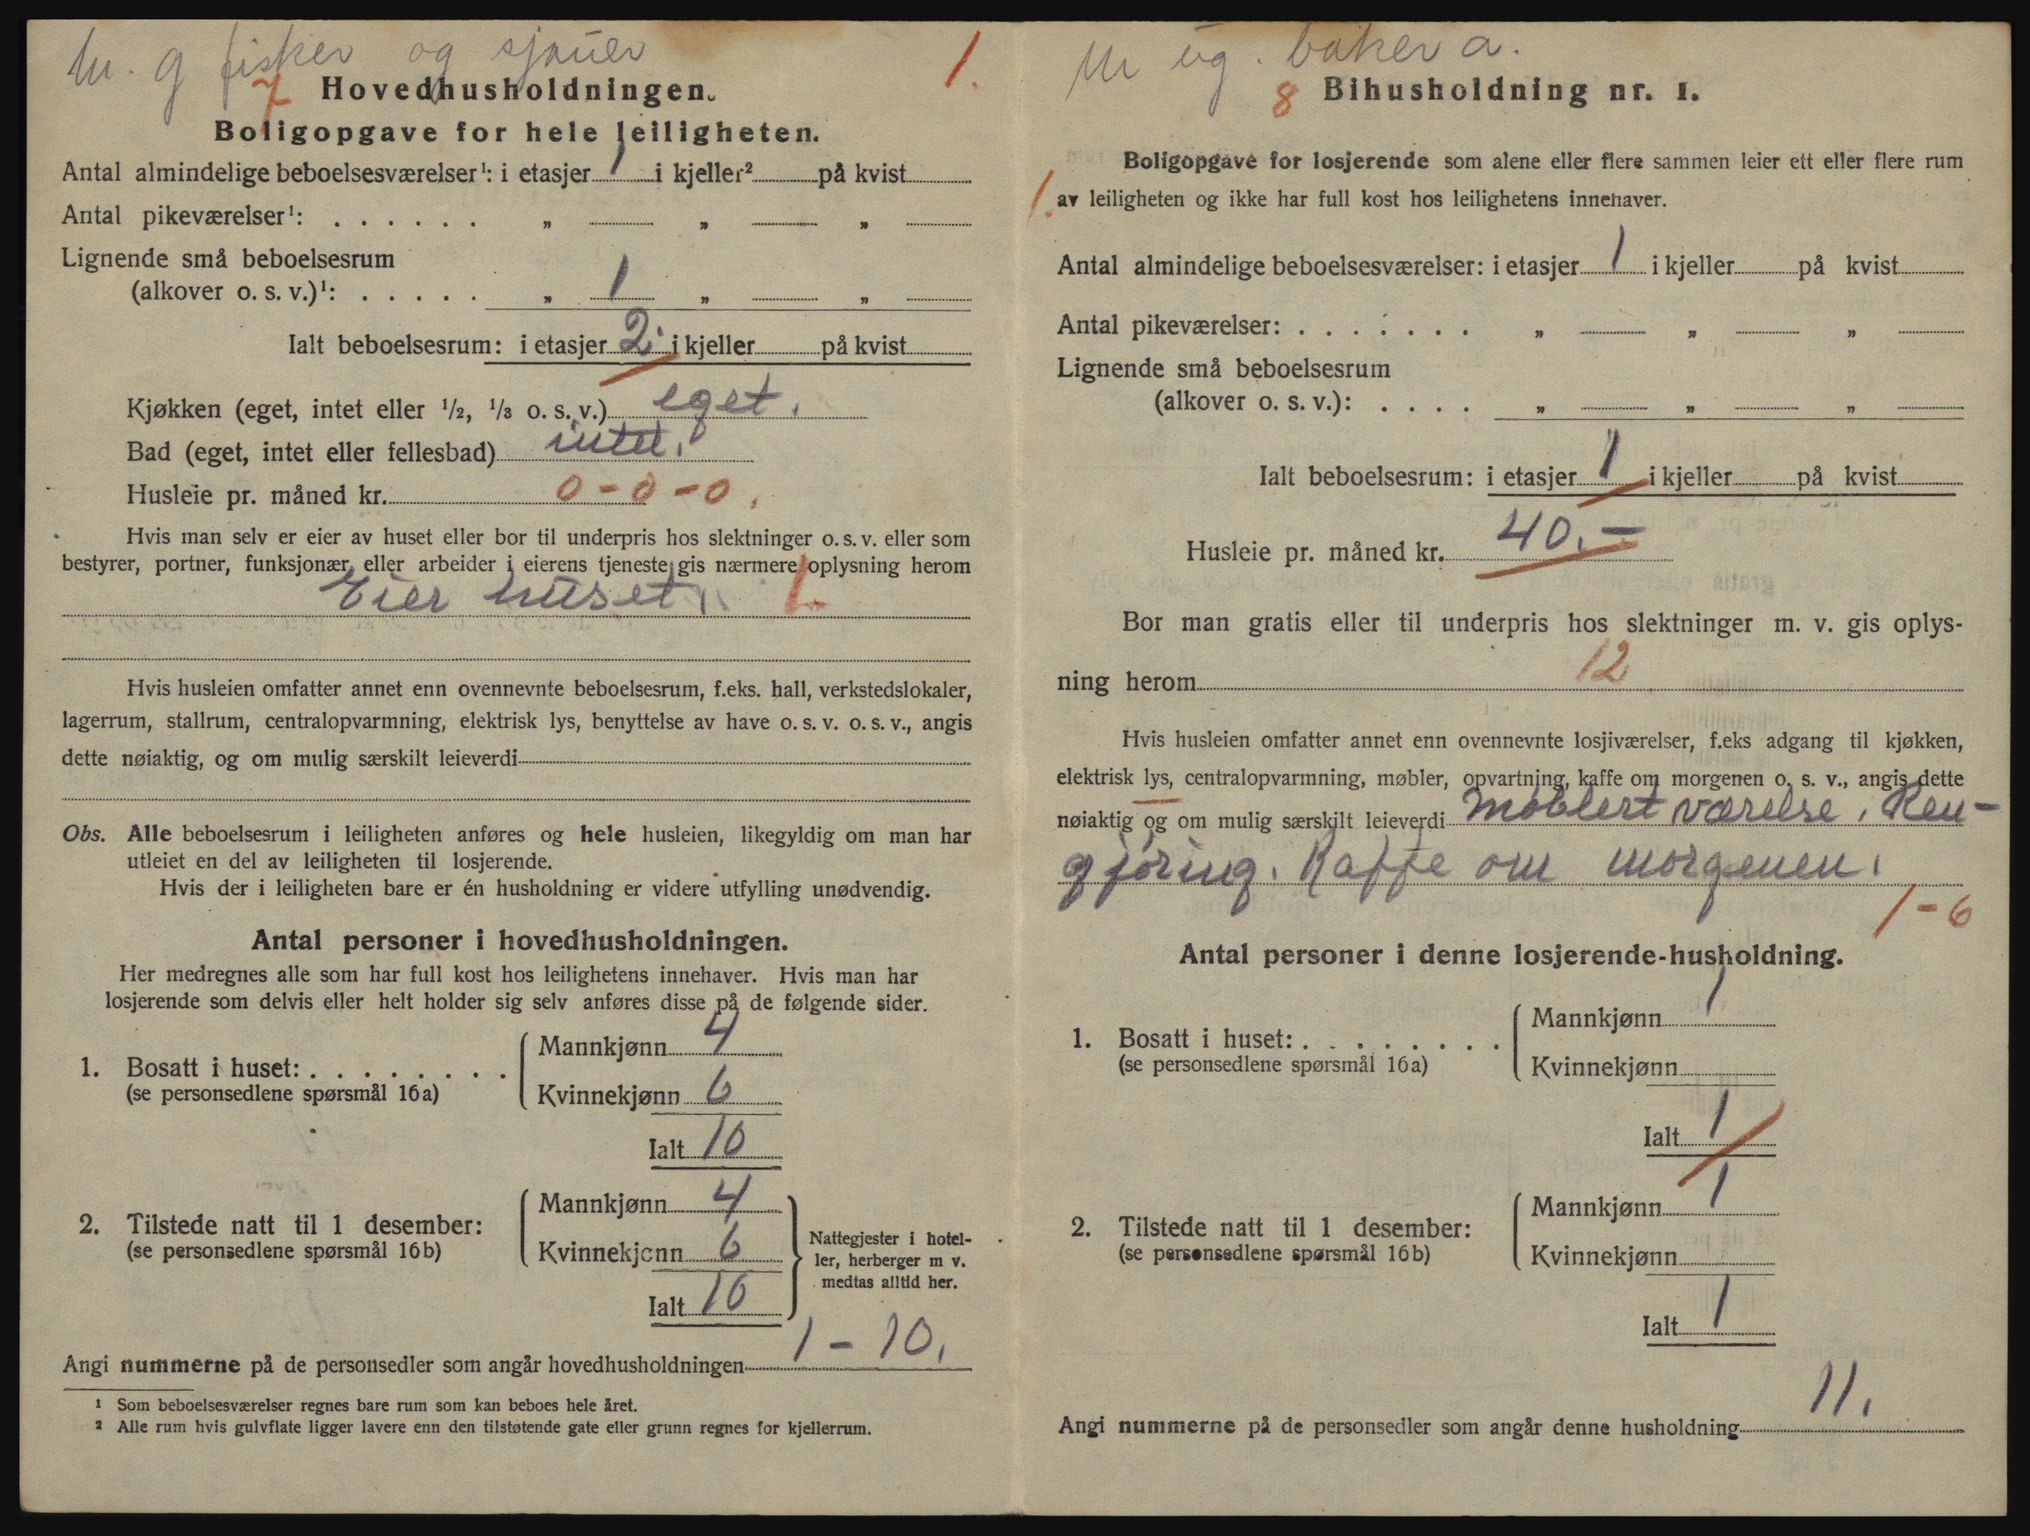 M. g fisker og sjauer 1.
7 Hovedhusholdningen.
Boligopgave for hele leiligheten.
Antal almindelige beboelsesværelser¹: i etasjer 1 i kjeller² på kvist
Antal pikeværelser¹: . . . . . . „ „ „
Lignende små beboelsesrum
(alkover o. s. v.)¹: . . . . . „ 1 „ „
Ialt beboelsesrum: i etasjer 2. i kjeller på kvist
Kjøkken (eget, intet eller 1/2, 1/3 o. s. v.) eget.
Bad (eget, intet eller fellesbad) intet.
Husleie pr. måned kr. 0-0-0.
Hvis man selv er eier av huset eller bor til underpris hos slektninger o. s. v. eller som
bestyrer, portner, funksjonær eller arbeider i eierens tjeneste gis nærmere oplysning herom
Eier huset. 1.
Hvis husleien omfatter annet enn ovennevnte beboelsesrum, f.eks. hall, verkstedslokaler,
lagerrum, stallrum, centralopvarmning, elektrisk lys, benyttelse av have o. s. v. o. s. v., angis
dette nøiaktig, og om mulig særskilt leieverdi
Obs. Alle beboelsesrum i leiligheten anføres og hele husleien, likegyldig om man har
utleiet en del av leiligheten til losjerende.
Hvis der i leiligheten bare er én husholdning er videre utfylling unødvendig.
Antal personer i hovedhusholdningen.
Her medregnes alle som har full kost hos leilighetens innehaver. Hvis man har
losjerende som delvis eller helt holder sig selv anføres disse på de følgende sider.
1. Bosatt i huset: . . . . . . . .
(se personsedlene spørsmål 16a)
Mannkjønn 4
Kvinnekjønn 6
Ialt 10
2. Tilstede natt til 1 desember:
(se personsedlene spørsmål 16b)
Mannkjønn 4
Kvinnekjønn 6
Ialt 10
Nattegjester i hotel-
ler, herberger m v.
medtas alltid her.
Angi nummerne på de personsedler som angår hovedhusholdningen 1 - 10.
¹ Som beboelsesværelser regnes bare rum som kan beboes hele året.
² Alle rum hvis gulvflate ligger lavere enn den tilstøtende gate eller grunn regnes for kjellerrum.
M ug. baker a.
8 Bihusholdning nr. 1.
Boligopgave for losjerende som alene eller flere sammen leier ett eller flere rum
1. av leiligheten og ikke har full kost hos leilighetens innehaver.
Antal almindelige beboelsesværelser: i etasjer 1 i kjeller på kvist
Antal pikeværelser: . . . . . . . „ „ „
Lignende små beboelsesrum
(alkover o. s. v.): . . . . „ „ „
Ialt beboelsesrum: i etasjer 1 i kjeller på kvist
Husleie pr. måned kr. 40.-
Bor man gratis eller til underpris hos slektninger m. v. gis oplys-
ning herom 12
Hvis husleien omfatter annet enn ovennevnte losjiværelser, f.eks adgang til kjøkken,
elektrisk lys, centralopvarmning, møbler, opvartning, kaffe om morgenen o. s. v., angis dette
nøiaktig og om mulig særskilt leieverdi Møblert værelse. Ren-
gjøring. Kaffe om morgenen.
1-6
Antal personer i denne losjerende-husholdning.
1. Bosatt i huset: . . . . . . . .
(se personsedlene spørsmål 16a)
Mannkjønn 1
Kvinnekjønn
Ialt 1
2. Tilstede natt til 1 desember:
(se personsedlene spørsmål 16b)
Mannkjønn 1
Kvinnekjønn
Ialt 1
Angi nummerne på de personsedler som angår denne husholdning 11.